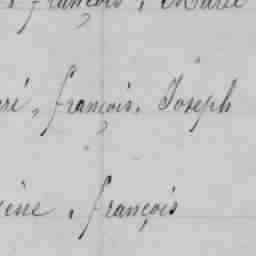 françois, Marie
ré, françois, Joseph
ène, françois